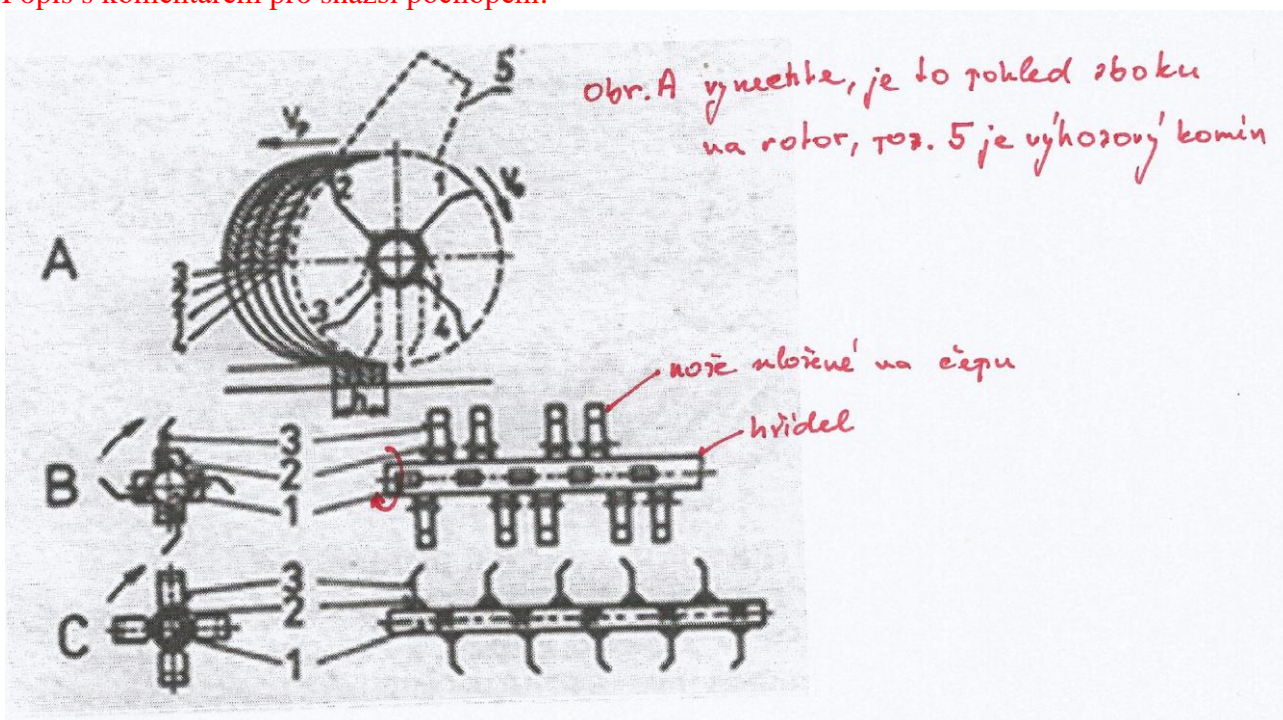 Popis s komentářem pro snazší pochopení:
obr. A vynechte, je to pohled zboku
na rotor, poz. 5 je výhozový komín
5
Vp
2
1
A
3
2
1
4
3
4
h
nože uložené na čepu
hřídel
B
3
2
1
C
3
2
1